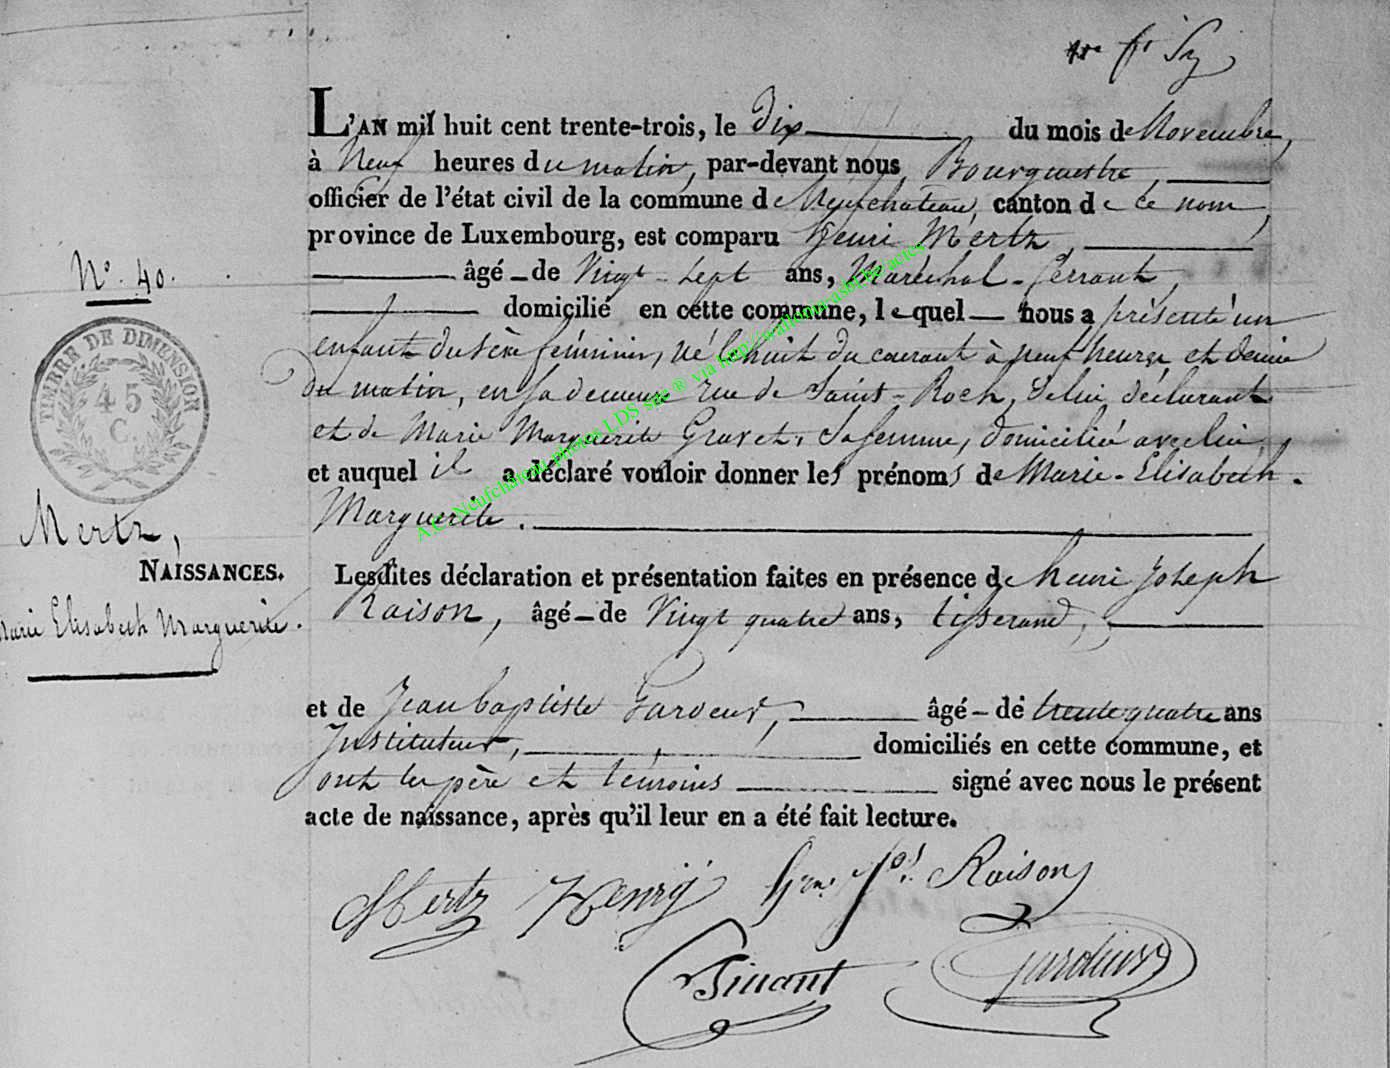 L'AN mil huit cent trente-trois, le Dix du mois de Novembre,
à Neuf heures du matin, par-devant nous Bourgmestre,
officier de l'état civil de la commune de Neufchateau, canton de ce nom,
province de Luxembourg, est comparu Henri Mertz,
N°. 40.
âgé de Vingt-sept ans, Maréchal-ferrant,
domicilié en cette commune, lequel nous a présenté un
TIMBRE DE DIMENSION
45
C.
enfant du sèxe féminin, né le huit du courant à neuf heures et demie
du matin, en sa demeure rue de Saint-Roch, de lui déclarant
et de Marie Marguerite Gravet, sa femme, domiciliée avec lui,
et auquel il a déclaré vouloir donner les prénoms de Marie-Elisabeth-
Marguerite.
A.C. Neufchâteau photos LDS sur ® via http://wallonia-asbl.be/actes
Mertz,
NAISSANCES.
Marie Elisabeth Marguerite.
Lesdites déclaration et présentation faites en présence de Henri Joseph
Raison, âgé de Vingt quatre ans, tisserand,
et de Jean baptiste âgé de trente quatre ans
Instituteur, domiciliés en cette commune, et
ont les père et témoins signé avec nous le présent
acte de naissance, après qu'il leur en a été fait lecture.
Mertz Henry Raison